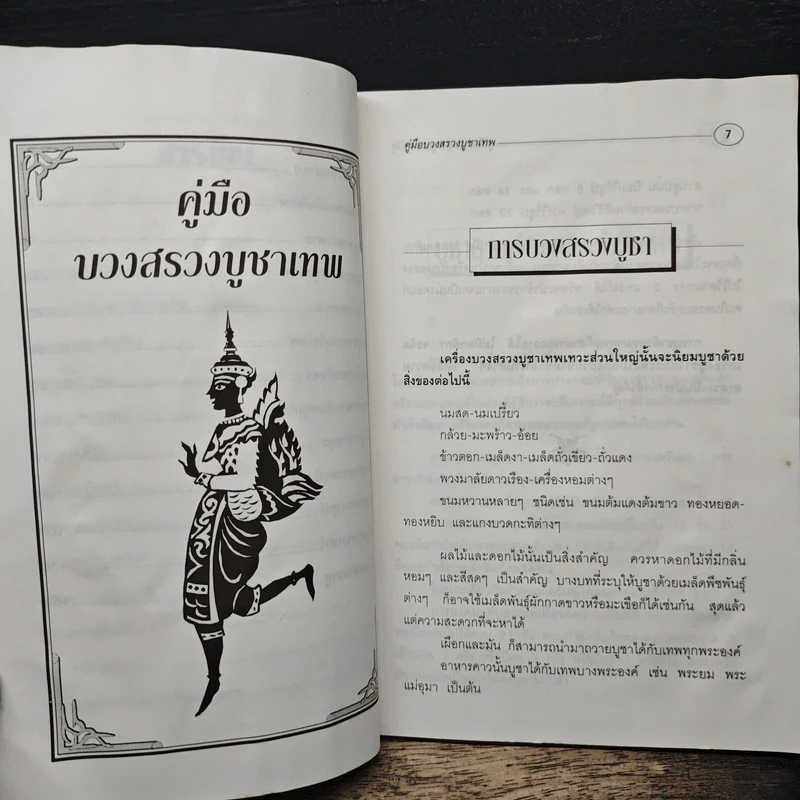 คู่มือ
บวงสรวงบูชาเทพ
คู่มือบวงสรวงบูชาเทพ
7
การบวงสรวงบูชา
เครื่องบวงสรวงบูชาเทพเทวะส่วนใหญ่นั้นจะนิยมบูชาด้วย
สิ่งของต่อไปนี้
นมสด-นมเปรี้ยว
กล้วย-มะพร้าว-อ้อย
ข้าวตอก-เมล็ดงา-เมล็ดถั่วเขียว-ถั่วแดง
พวงมาลัยดาวเรือง-เครื่องหอมต่างๆ
ขนมหวานหลายๆ ชนิดเช่น ขนมต้มแดงต้มขาว ทองหยอด-
ทองหยิบ และแกงบวดกะทิต่างๆ
ผลไม้และดอกไม้นั้นเป็นสิ่งสำคัญ ควรหาดอกไม้ที่มีกลิ่น
หอมๆ และสีสดๆ เป็นสำคัญ บางบทที่ระบุให้บูชาด้วยเมล็ดพืชพันธุ์
ต่างๆ ก็อาจใช้เมล็ดพันธุ์ผักกาดขาวหรือมะเขือก็ได้เช่นกัน สุดแล้ว
แต่ความสะดวกที่จะหาได้
เผือกและมัน ก็สามารถนำมาถวายบูชาได้กับเทพทุกพระองค์
อาหารคาวนั้นบูชาได้กับเทพบางพระองค์ เช่น พระยม พระ
แม่อุมา เป็นต้น